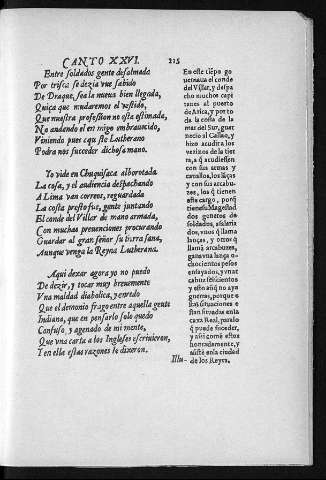 CANTO XXVI. 215
Entre soldados gente desalmada
Por trisca se dezia vue sabido
De Draque, sea la nueua bien llegada,
Quiça que mudaremos el vestido,
Que nuestra profession no está estimada,
No andando el en migo embrauecido,
Viniendo pues aqu ste Lutherano
Podra nos succeder dicho sa mano.
Yo vide en Chuquisaca alborotada
La cosa, y el audiencia despachando
A Lima van correos, reguardada
La costa presto fue, gente juntando
El conde del Villar de mano armada,
Con muchas preuenciones procurando
Guardar al gran señor su tierra sana,
Aunque venga la Reyna Lutherana.
Aqui dexar agora yo no puedo
De dezir, y tocar muy breuemente
Vna maldad diabolica, y enredo
Que el demonio frago entre aquella gente
Indiana, que en pensarlo solo quedo
Confuso, y agenado de mi mente,
Que vna carta a los Ingleses escriuieron,
Y en ella estas razones le dixeron.
Illu-
En este tiẽpo go
uernaua el conde
del Villar, y despa
cho muchos capi
tanes al puerto
de Arica, y por to
da la costa de la
mar del Sur, guar
necio al Callao, y
hizo acudir a los
vezinos de la tier
ra, q̃ acudiessen
con sus armas y
cauallos, los lãças
y con sus arcabu-
zes, los q̃ tienen
este cargo, porq̃
tiene su Magestad
dos generos de
soldados, asalaria
dos, vnos q̃ llama
lanças, y otros q̃
llamã arcabuzes,
gana vna lança o-
chocientos pesos
ensayados, y vn at
cabuz seiscientos
y esto aũq̃ no aya
guerras, porque e
stas situaciones e
stan situadas en la
caxa Real, para lo
q̃ puede suceder,
y assi come estos
honradamente, y
asistẽ en la ciudad
de los Reyes.